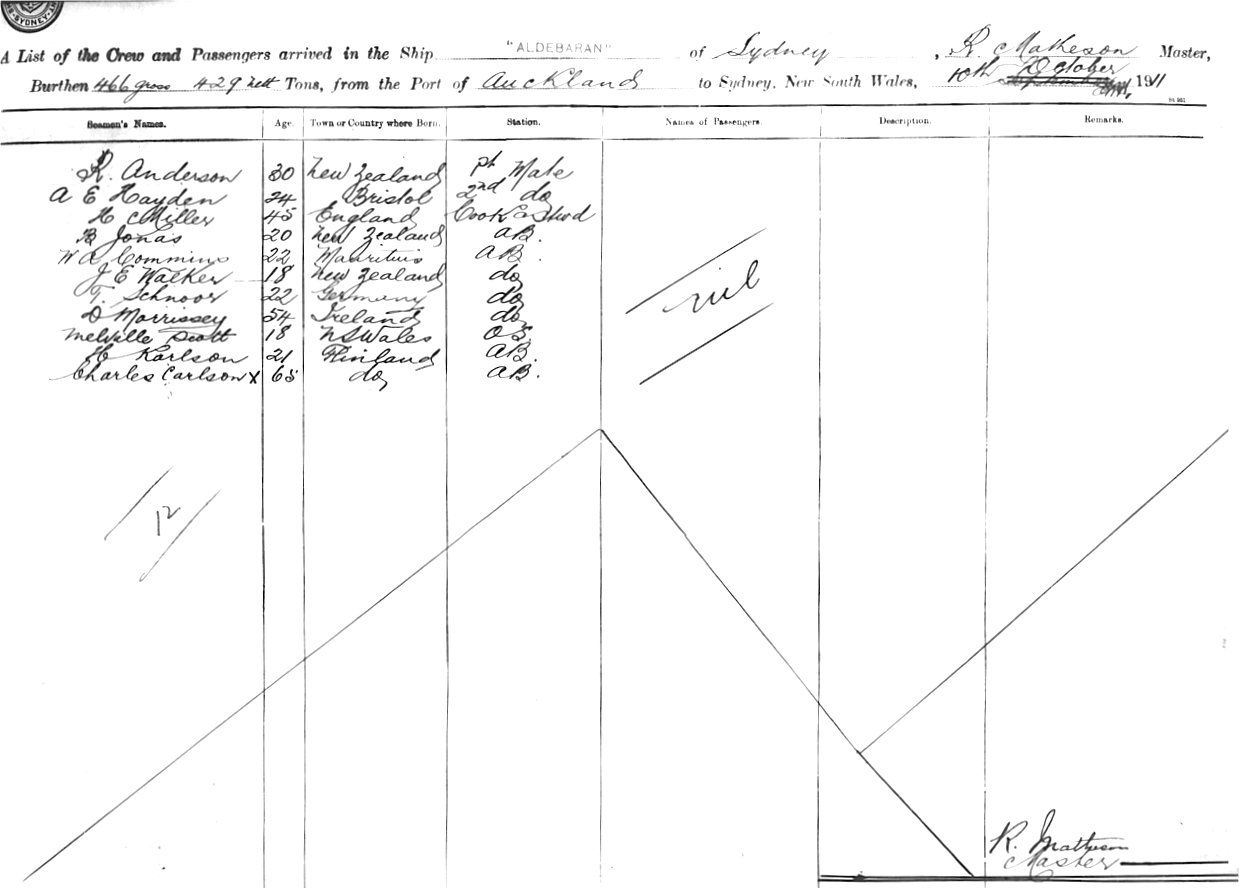 SYDNEY
A List of the Crew and Passengers arrived in the Ship "ALDEBARAN" of Sydney, R. Matheson Master,
Burthen 466 gross 429 nett Tons, from the Port of Auckland to Sydney, New South Wales, 10th October 1911
Seamen's Names. Age. Town or Country where Born. Station. Names of Passengers. Description. Remarks.
R. Anderson 30 New Zealand Mate
A E Hayden 24 Bristol 2nd do
H Miller 45 England Cook & Stwd
B Jonas 20 New Zealand AB.
W A Commins 22 Mauritius AB.
J E Walker 18 New Zealand do
T. Schnoor 22 Germany do
D Morrissey 54 Ireland do
Melville Scott 18 NSWales OS
Karlson 21 Finland AB.
Charles Carlson x 65 do AB.
nil
12
R. Matheson
Master